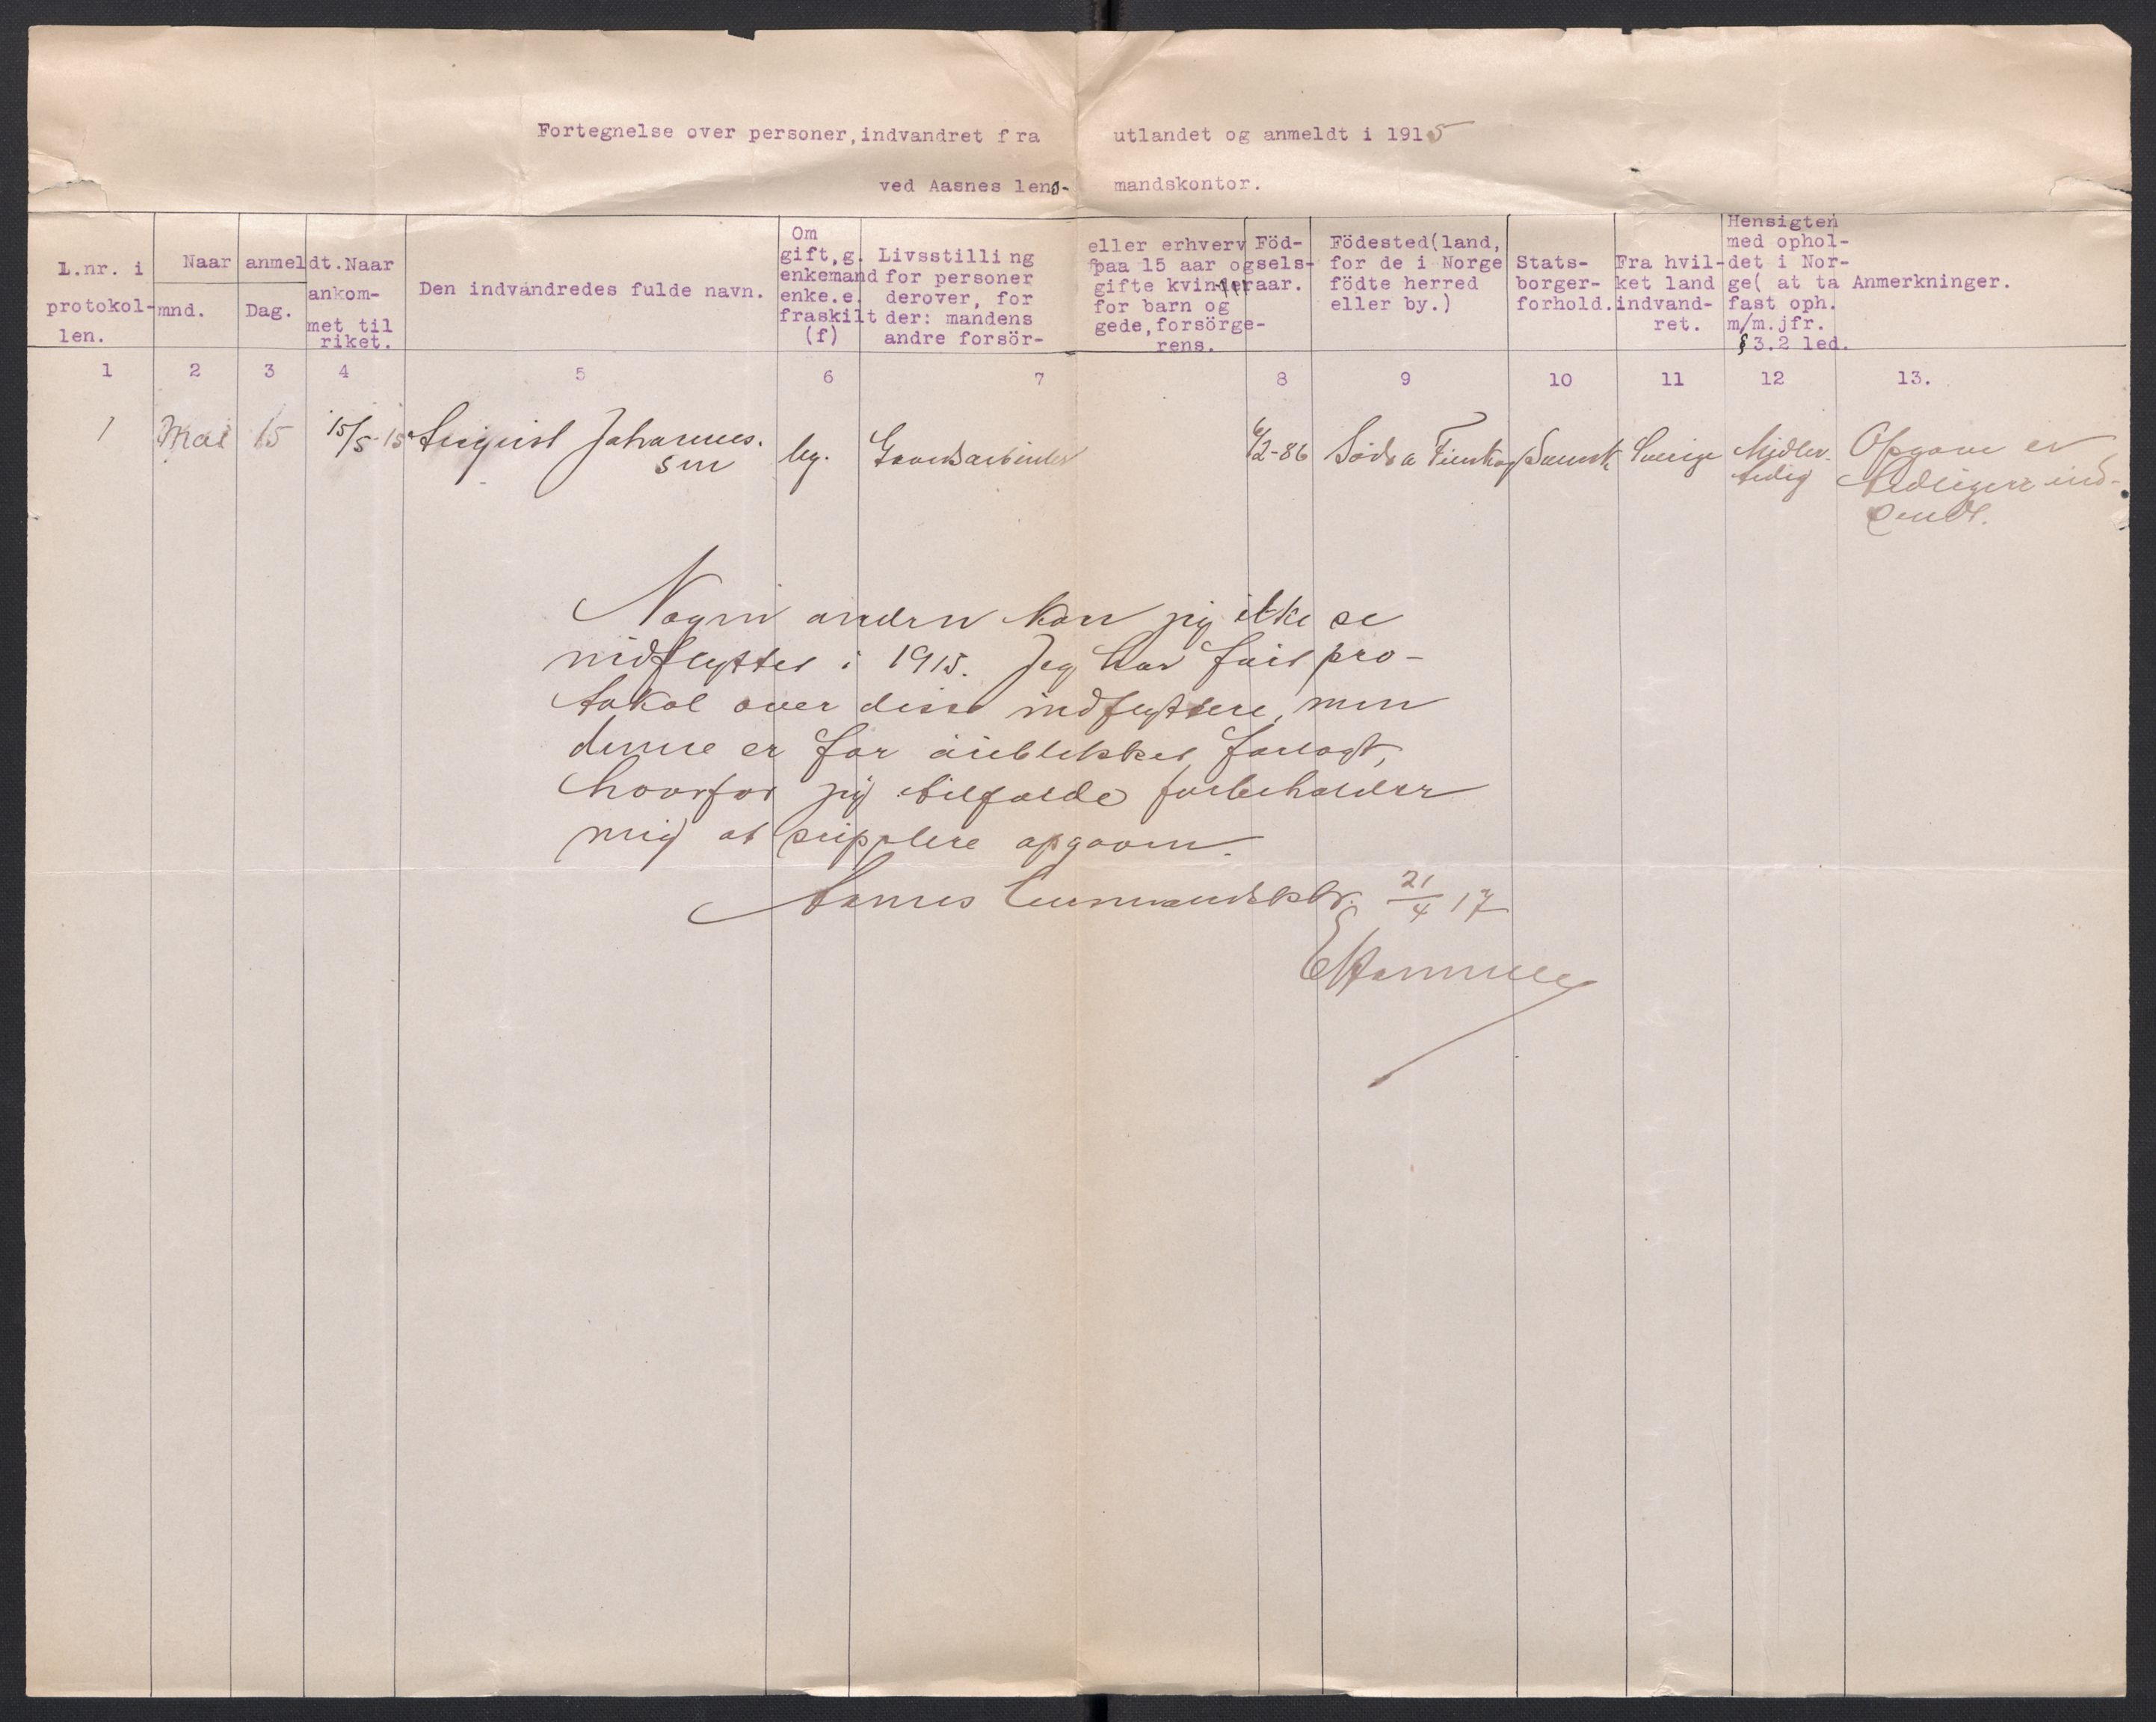 Fortegnelse over personer, indvandret fra utlandet og anmeldt i 1915
ved Aasnes lens- mandskontor.
L.nr. i protokol- len.
Naar anmeldt.
mnd.
Dag.
Naar ankom- met til riket.
Den indvandredes fulde navn.
Om gift, g. enkemand enke.e. fraskilt (f)
Livsstilling eller erhverv
for personer paa 15 aar og
derover, for gifte kvin-
der: mandens for barn og
andre forsör- gede, forsörge- rens.
Föd- sels- aar.
Födested (land, for de i Norge födte herred eller by.)
Stats- borger- forhold.
Fra hvil- ket land indvand- ret.
Hensigten med ophol- det i Nor- ge( at ta fast oph. m/m. jfr. § 3.2 led.
Anmerkninger.
1 2 3 4 5 6 7 8 9 10 11 12 13.
1 Mai 15 15/5-15 August Johannes. ug. Gaardsarbeider 6/2-86 Södra Finskog Svensk Sverige Midler- Opgave er
sen tidig tidligere ind-
sendt.
Nogen andre kan jeg ikke se
indflyttet i 1915. Jeg har fört pro-
tokol over disse indflyttere, men
denne er for öieblikket forlagt,
hvorfor jeg tilfalde forbeholder
mig at supplere opgaven.
Aasnes lensmandsktr. 21/4 17